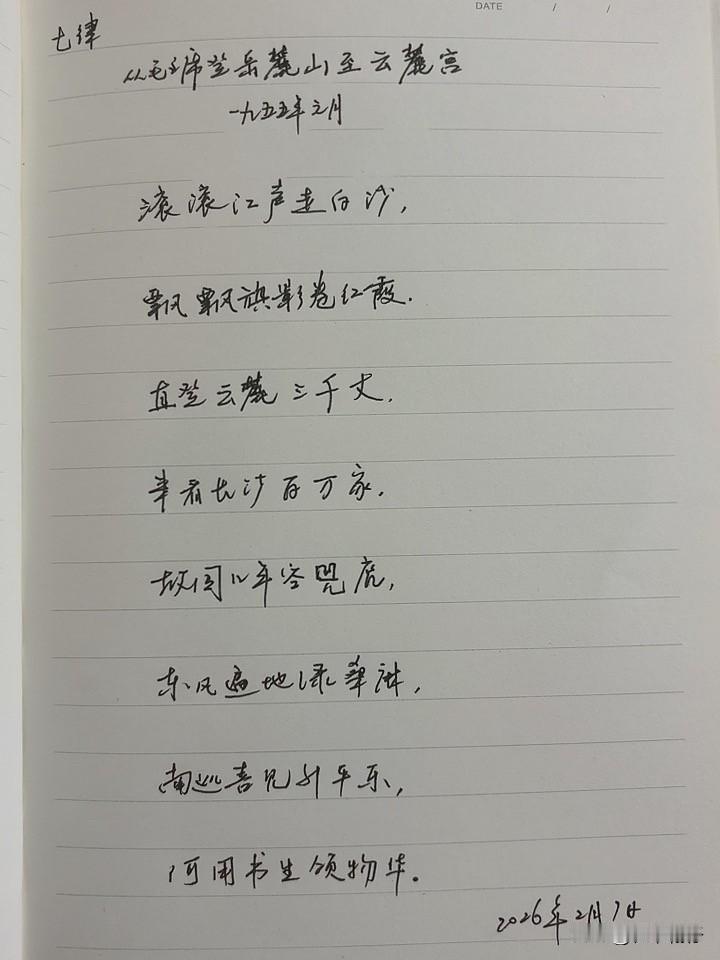 DATE / /
七律
从毛主席登岳麓山至云麓宫
一九五五年六月
滚滚江声走白沙,
飘飘旗影卷红霞.
直登云麓三千丈,
来看长沙百万家,
故国几年空兕虎,
东风遍地绿桑麻,
南巡喜见升平乐,
何用书生颂物华.
2026年2月7日